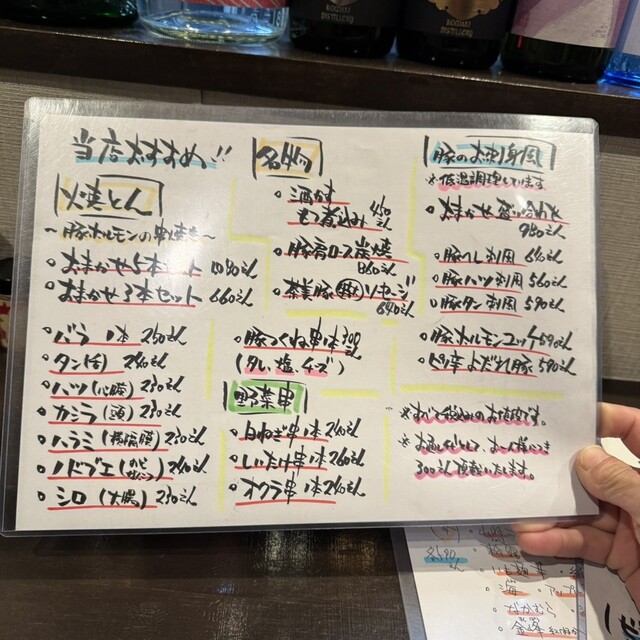 当店おすすめ!!
火焼とん
～豚ホルモンの串焼き～
・おまかせ5本セット 1080えん
・おまかせ3本セット 660えん
・バラ 1本 250えん
・タン(舌) 240えん
・ハツ(心臓) 230えん
・カシラ(頭) 230えん
・ハラミ(横隔膜) 250えん
・ノドブエ(のどなんこつ) 240えん
・シロ(大腸) 230えん
名物
・酒かす
もつ煮込み 450えん
・豚肩ロース炭焼
860えん
・ソーセージ
640えん
・豚つくね串 1本 300えん
(タレ・塩・チーズ)
野菜串
・白ねぎ串 1本 240えん
・しいたけ串 1本 260えん
・オクラ串 1本 240えん
豚のお刺身風
※低温調理しています
・おまかせ盛り合わせ
980えん
・豚ハツ刺風 560えん
・豚タン刺風 590えん
・豚ホルモンユッケ 590えん
・よだれ豚 590えん
※おいて税込みのお値段です。
※お通しとして、お一人様につき
300えん頂戴いたします。